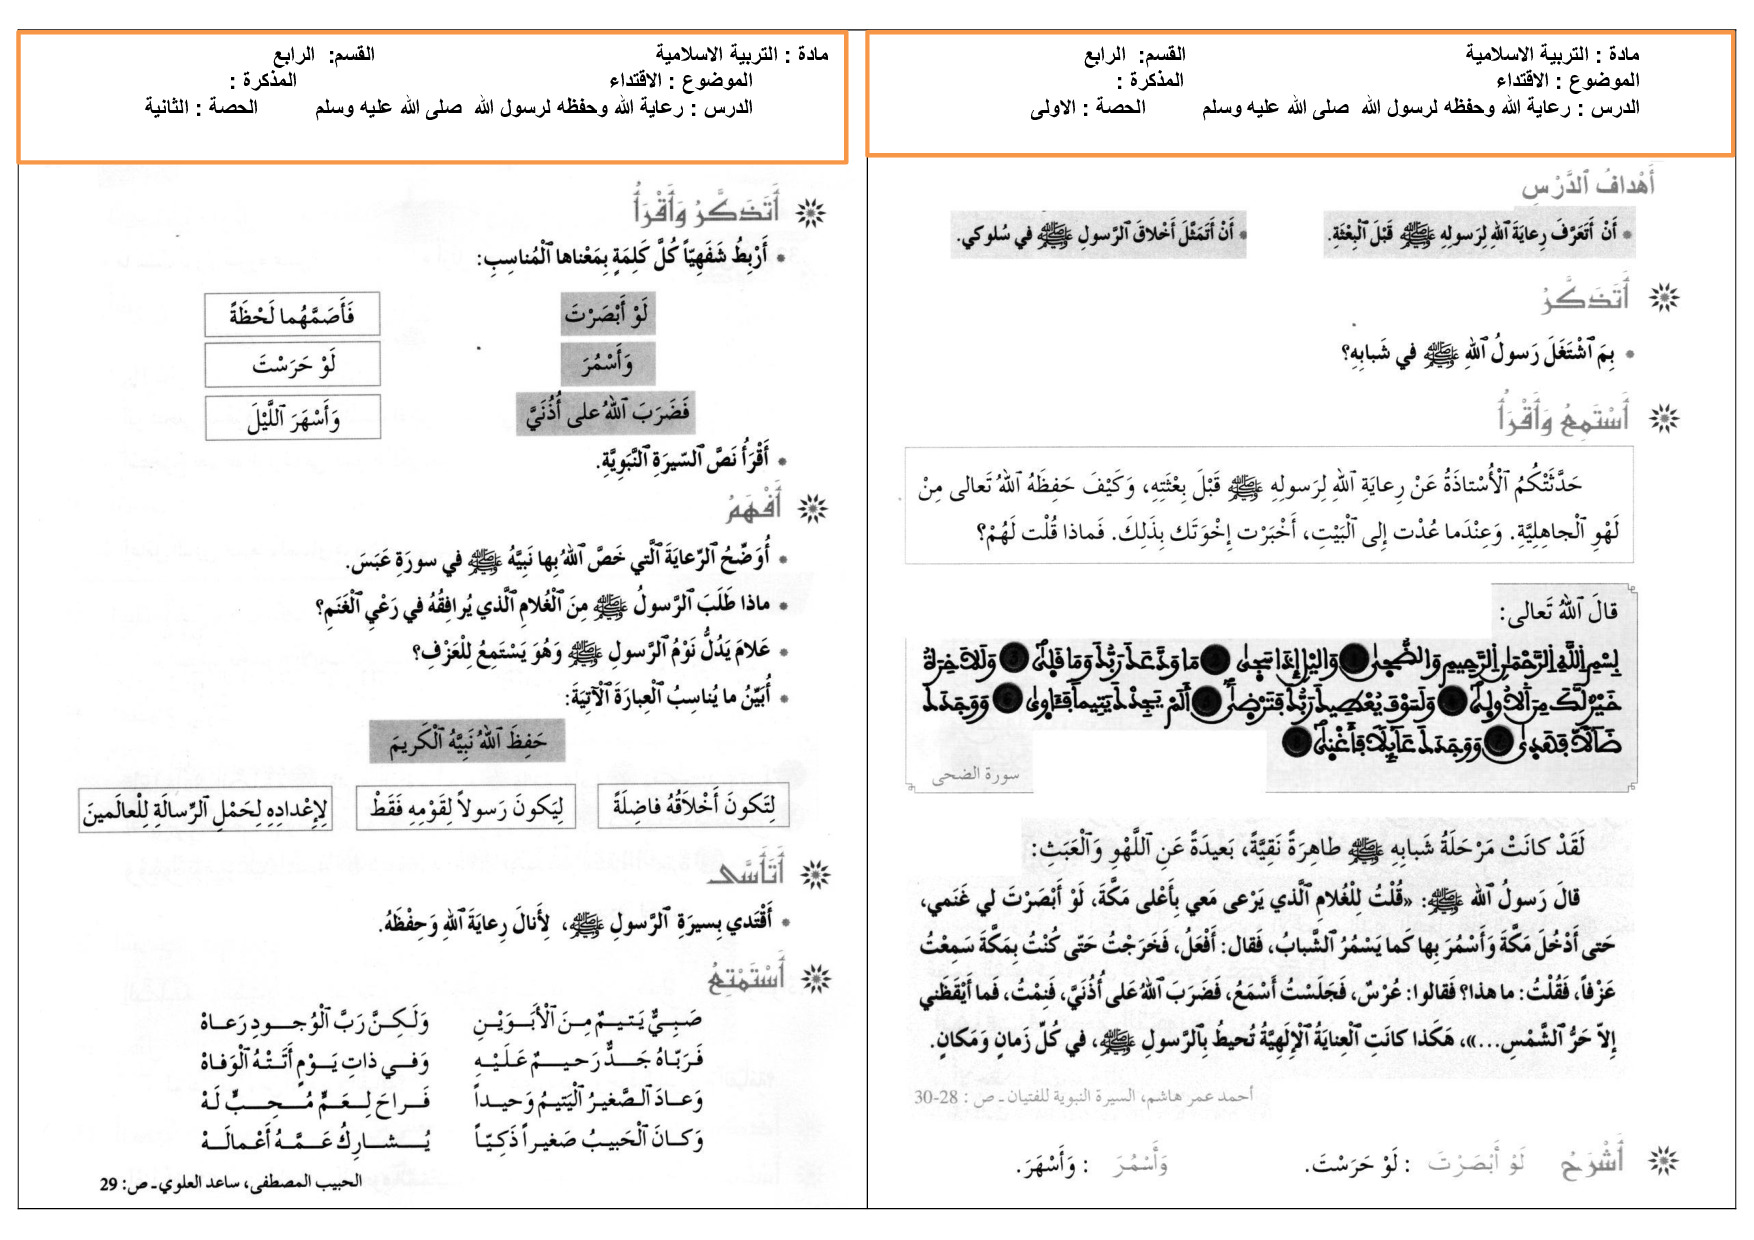 مادة : التربية الاسلامية القسم: الرابع
الموضوع : الاقتداء المذكرة :
الدرس : رعاية الله وحفظه لرسول الله صلى الله عليه وسلم الحصة : الاولى
أَهْدافُ ٱلدَّرْسِ
• أَنْ أَتَعَرَّفَ رِعايَةَ ٱللهِ لِرَسولِهِ ﷺ قَبْلَ ٱلْبِعْثَةِ. • أَنْ أَتَمَثَّلَ أَخْلاقَ ٱلرَّسولِ ﷺ في سُلوكي.
أَتَذَكَّرُ
• بِمَ ٱشْتَغَلَ رَسولُ ٱللهِ ﷺ في شَبابِهِ؟
أَسْتَمِعُ وَأَقْرَأُ
حَدَّثَتْكُمُ ٱلْأُسْتاذَةُ عَنْ رِعايَةِ ٱللهِ لِرَسولِهِ ﷺ قَبْلَ بِعْثَتِهِ، وَكَيْفَ حَفِظَهُ ٱللهُ تَعالى مِنْ
لَهْوِ ٱلْجاهِلِيَّةِ. وَعِنْدَما عُدْت إِلى ٱلْبَيْتِ، أَخْبَرْت إِخْوَتَك بِذَلِكَ. فَماذا قُلْت لَهُمْ؟
قالَ ٱللهُ تَعالى:
بِسْمِ اللَّهِ الرَّحْمَٰنِ الرَّحِيمِ وَالضُّحَىٰ 1 وَاليْلِ إِذَا سَجَىٰ 2 مَا وَدَّعَكَ رَبُّكَ وَمَا قَلَىٰ 3 وَلَلَاخِرَةُ
خَيْرٌ لَّكَ مِنَ الُاولَىٰ 4 وَلَسَوْفَ يُعْطِيكَ رَبُّكَ فَتَرْضَىٰ 5 أَلَمْ يَجِدْكَ يَتِيماً فَـَٔاوَىٰ 6 وَوَجَدَكَ
ضَآلّاً فَهَدَىٰ 7 وَوَجَدَكَ عَآئِلاً فَأَغْنَىٰ 8
سورة الضحى
لَقَدْ كانَتْ مَرْحَلَةُ شَبابِهِ ﷺ طاهِرَةً نَقِيَّةً، بَعيدَةً عَنِ ٱللَّهْوِ وَٱلْعَبَثِ:
قالَ رَسولُ ٱلله ﷺ: «قُلْتُ لِلْغُلامِ ٱلَّذي يَرْعى مَعي بِأَعْلى مَكَّةَ، لَوْ أَبْصَرْتَ لي غَنَمي،
حَتى أَدْخُلَ مَكَّةَ وَأَسْمُرَ بِها كَما يَسْمُرُ ٱلشَّبابُ، فَقال: أَفْعَلُ، فَخَرَجْتُ حَتّى كُنْتُ بِمَكَّةَ سَمِعْتُ
عَزْفاً، فَقُلْتُ: ما هذا؟ فَقالوا: عُرْسٌ، فَجَلَسْتُ أَسْمَعُ، فَضَرَبَ ٱللهُ عَلى أُذُنَيَّ، فَنِمْتُ، فَما أَيْقَظَني
إِلاّ حَرُّ ٱلشَّمْسِ...»، هَكَذا كانَتِ ٱلْعِنايَةُ ٱلْإِلَهِيَّةُ تُحيطُ بِٱلرَّسولِ ﷺ، في كُلِّ زَمانٍ وَمَكانٍ.
أحمد عمر هاشم، السيرة النبوية للفتيان ـ ص : 28-30
أَشْرَحُ لَوْ أَبْصَرْتَ : لَوْ حَرَسْتَ. وَأَسْمُرَ : وَأَسْهَرَ.
مادة : التربية الاسلامية القسم: الرابع
الموضوع : الاقتداء المذكرة :
الدرس : رعاية الله وحفظه لرسول الله صلى الله عليه وسلم الحصة : الثانية
أَتَذَكَّرُ وَأَقْرَأُ
• أَرْبِطُ شَفَهِيّاً كُلَّ كَلِمَةٍ بِمَعْناها ٱلْمُناسِبِ:
لَوْ أَبْصَرْتَ فَأَصَمَّهُما لَحْظَةً
وَأَسْمُرَ لَوْ حَرَسْتَ
فَضَرَبَ ٱللهُ على أُذُنَيَّ وَأَسْهَرَ ٱللَّيْلَ
• أَقْرَأُ نَصَّ ٱلسّيرَةِ ٱلنَّبَوِيَّةِ.
أَفْهَمُ
• أُوَضِّحُ ٱلرِّعايَةَ ٱلَّتي خَصَّ ٱللهُ بِها نَبِيَّهُ ﷺ في سورَةِ عَبَسَ.
• ماذا طَلَبَ ٱلرَّسولُ ﷺ مِنَ ٱلْغُلامِ ٱلَّذي يُرافِقُهُ في رَعْيِ ٱلْغَنَمِ؟
• عَلامَ يَدُلُّ نَوْمُ ٱلرَّسولِ ﷺ وَهُوَ يَسْتَمِعُ لِلْعَزْفِ؟
• أُبَيِّنُ ما يُناسِبُ ٱلْعِبارَةَ ٱلْآتِيَةَ:
حَفِظَ ٱللهُ نَبِيَّهُ ٱلْكَريمَ
لِتَكونَ أَخْلاَقُهُ فاضِلَةً لِيَكونَ رَسولاً لِقَوْمِهِ فَقَطْ لِإِعْدادِهِ لِحَمْلِ ٱلرِّسالَةِ لِلْعالَمينَ
أَتَأَسَّى
• أَقْتَدي بِسيرَةِ ٱلرَّسولِ ﷺ، لِأَنالَ رِعايَةَ ٱللهِ وَحِفْظَهُ.
أَسْتَمْتِعُ
صَبِيٌّ يَتيمٌ مِنَ ٱلْأَبَوَيْنِ وَلَكِنَّ رَبَّ ٱلْوُجودِ رَعاهْ
فَرَبّاهُ جَدٌّ رَحيمٌ عَلَيْهِ وَفي ذاتِ يَوْمٍ أَتَتْهُ ٱلْوَفاهْ
وَعادَ ٱلصَّغيرُ ٱلْيَتيمُ وَحيداً فَراحَ لِعَمٍّ مُحِبٍّ لَهْ
وَكانَ ٱلْحَبيبُ صَغيراً ذَكِيّاً يُشارِكُ عَمَّهُ أَعْمالَهْ
الحبيب المصطفى، ساعد العلوي ـ ص: 29